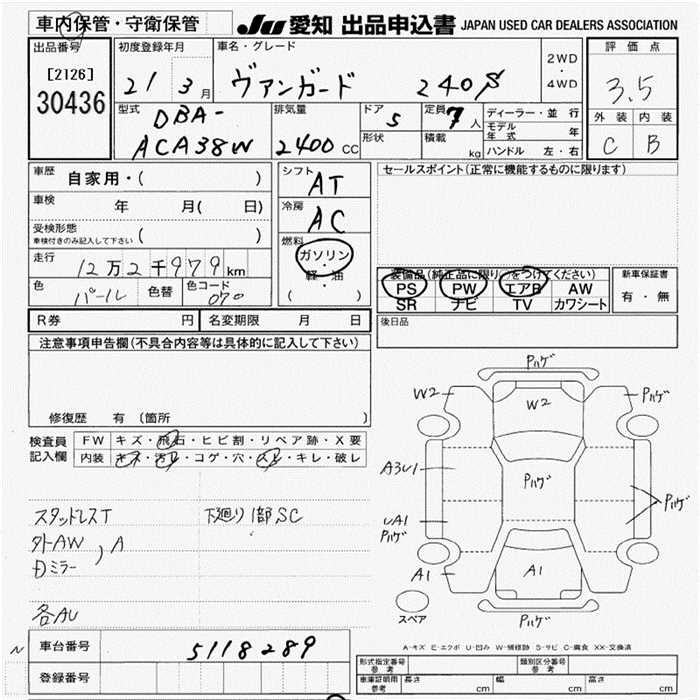 車内保管・守衛保管
JU 愛知 出品申込書 JAPAN USED CAR DEALERS ASSOCIATION
出品番号
[2126]
30436
初度登録年月
21 3月
車名・グレード
ヴァンガード 240S
2WD
・
4WD
評価点
3.5
型式
DBA-
ACA38W
排気量
2400 CC
ドア 5
形状
定員 7人
積載 kg
ディーラー・並行
モデル年式 年
ハンドル 左・右
外装 内装
C B
車歴 自家用・( )
車検 年 月( 日)
受検形態
車検付きのみ記入して下さい ( )
走行 12万2千979km
色 パール 色替 色コード 070
シフト AT
冷房 AC
燃料
ガソリン
・
軽・油
( )
セールスポイント(正常に機能するものに限ります)
装備品(純正品に限り○をつけてください)
PS PW エアB AW
SR ナビ TV カワシート
新車保証書
有・無
後日品
R券 円 名変期限 月 日
注意事項申告欄(不具合内容等は具体的に記入して下さい)
修復歴 有 (箇所 )
検査員記入欄
FW キズ・飛石・ヒビ割・リペア跡・X要
内装 キズ・汚レ・コゲ・穴・スレ・キレ・破レ
スタッドレスT 下廻り1部SC
外AW , A
Dミラー
各AU
Pハゲ
W2 W2 Pハゲ
A3U1 Pハゲ Pハゲ
UA1
Pハゲ
A1 A1
スペア Pハゲ
A-キズ E-エクボ U-凹み W-補修跡 S-サビ C-腐食 XX-交換済
N
車台番号 5118289
登録番号
形式指定番号 参考 類別区分番号 参考
車庫証明用 参考 長さ cm 幅 cm 高さ cm